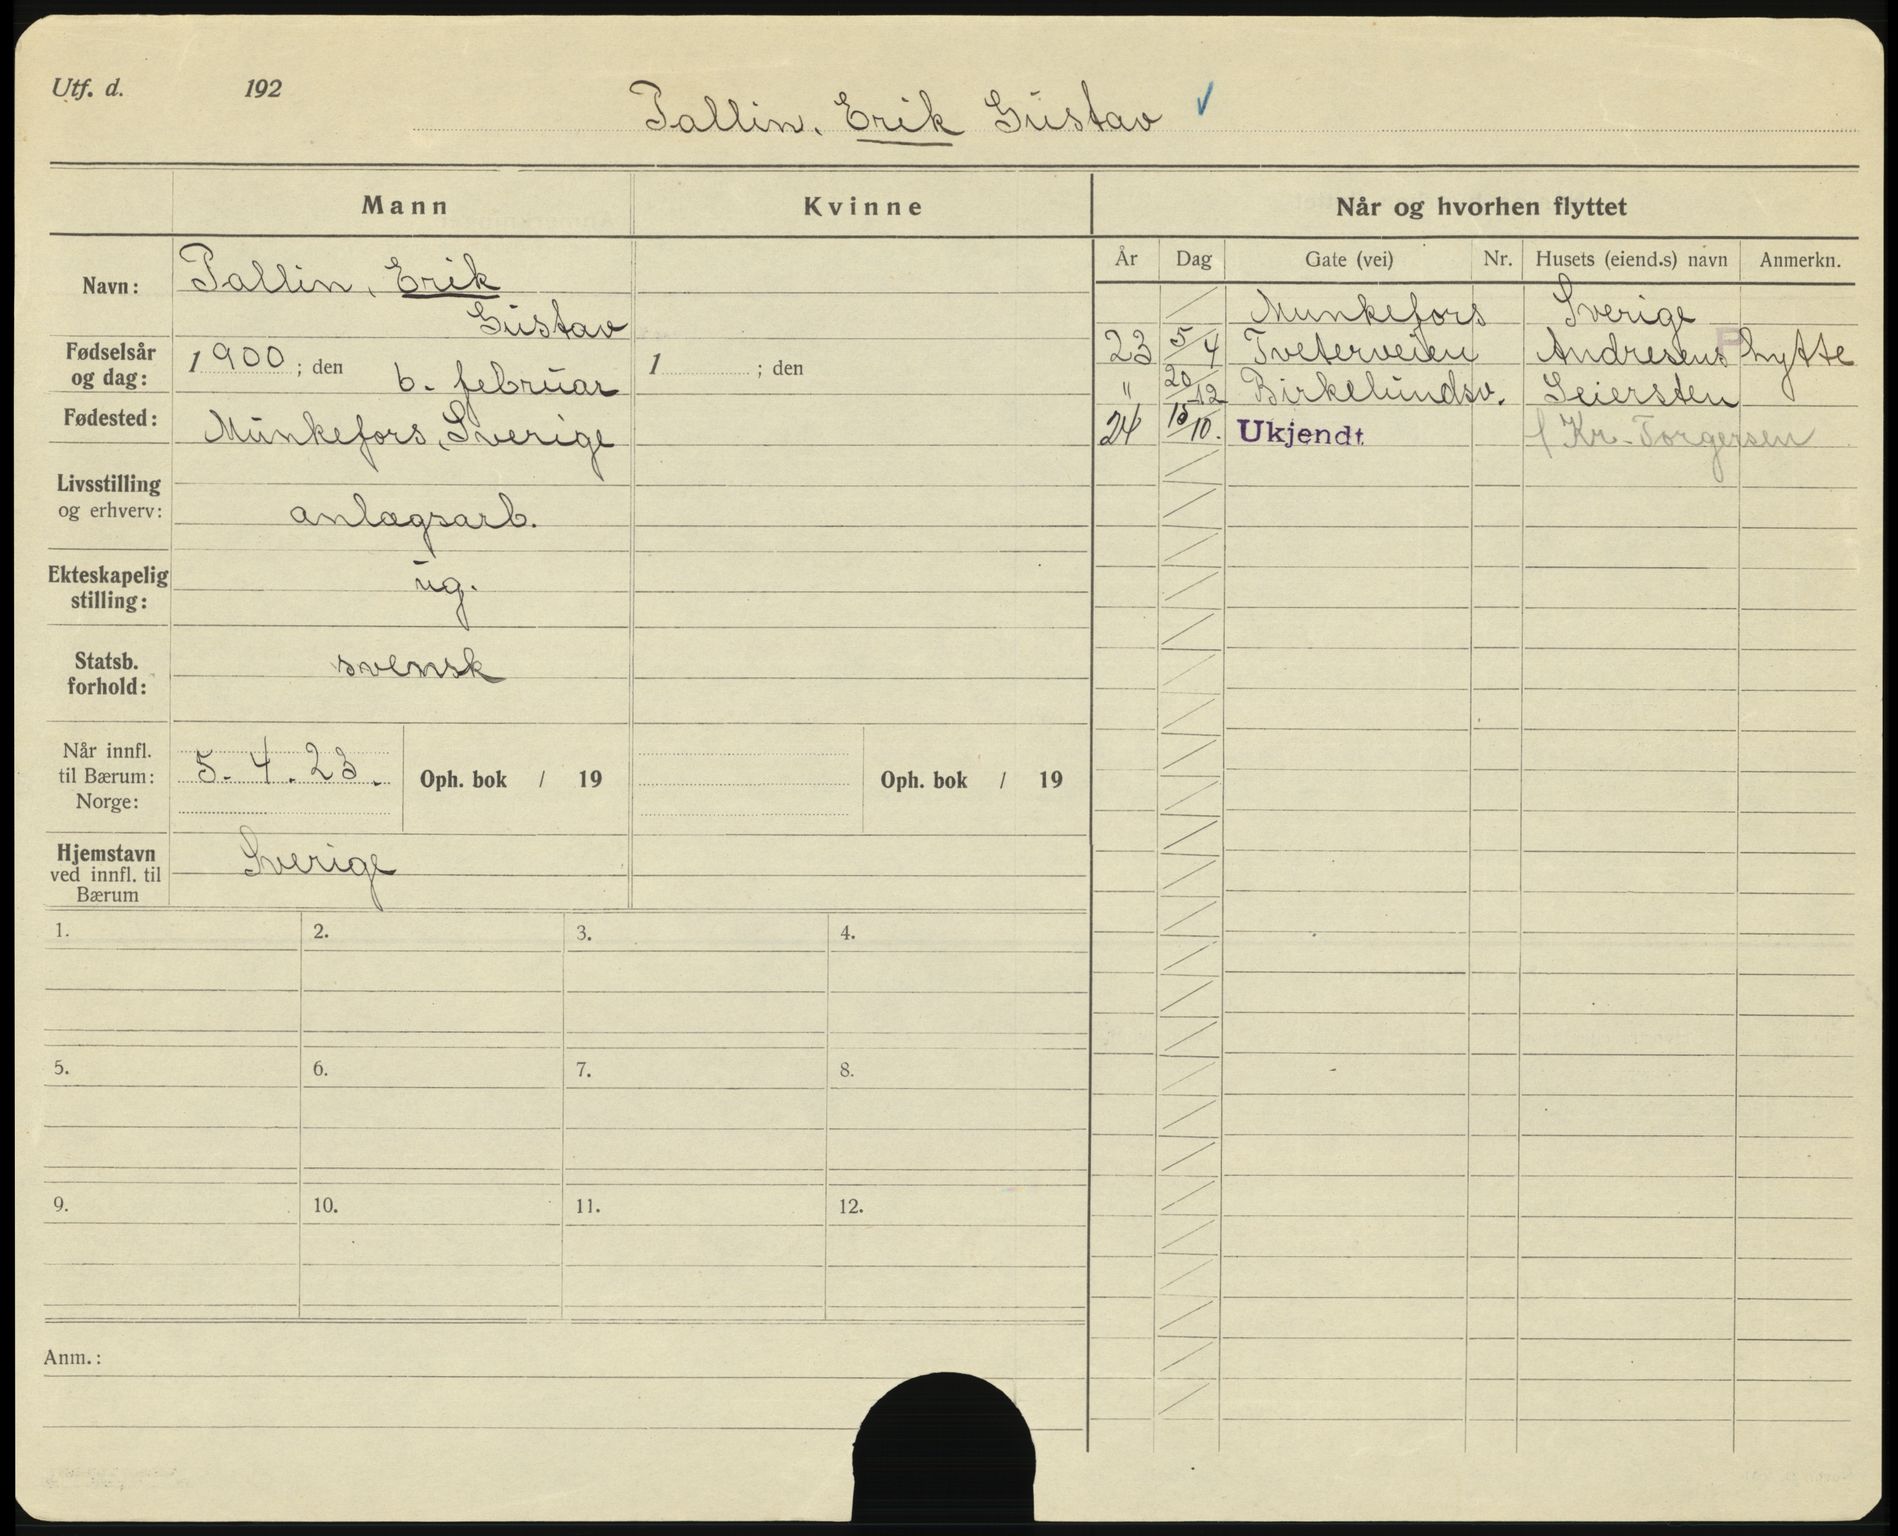 Utf. d. 192
Pallin, Erik Gustav ✓
Mann
Kvinne
Når og hvorhen flyttet
År Dag Gate (vei) Nr. Husets (eiend.s) navn Anmerkn.
Navn: Pallin, Erik
Gustav
Fødselsår
og dag: 1900 ; den 6. februar
1 ; den
Fødested: Munkefors, Sverige
Livsstilling
og erhverv: anlægsarb.
Ekteskapelig
stilling: ug.
Statsb.
forhold: svensk
Når innfl.
til Bærum: 5. 4. 23.
Norge:
Oph. bok / 19
Oph. bok / 19
Hjemstavn
ved innfl. til
Bærum Sverige
Munkefors Sverige
23 5/4 Tveterveien Andresens hytte
" 20/12 Birkelundsv. Seiersten
24 15/10. Ukjendt f Kr. Torgersen
P
1. 2. 3. 4.
5. 6. 7. 8.
9. 10. 11. 12.
Anm.: